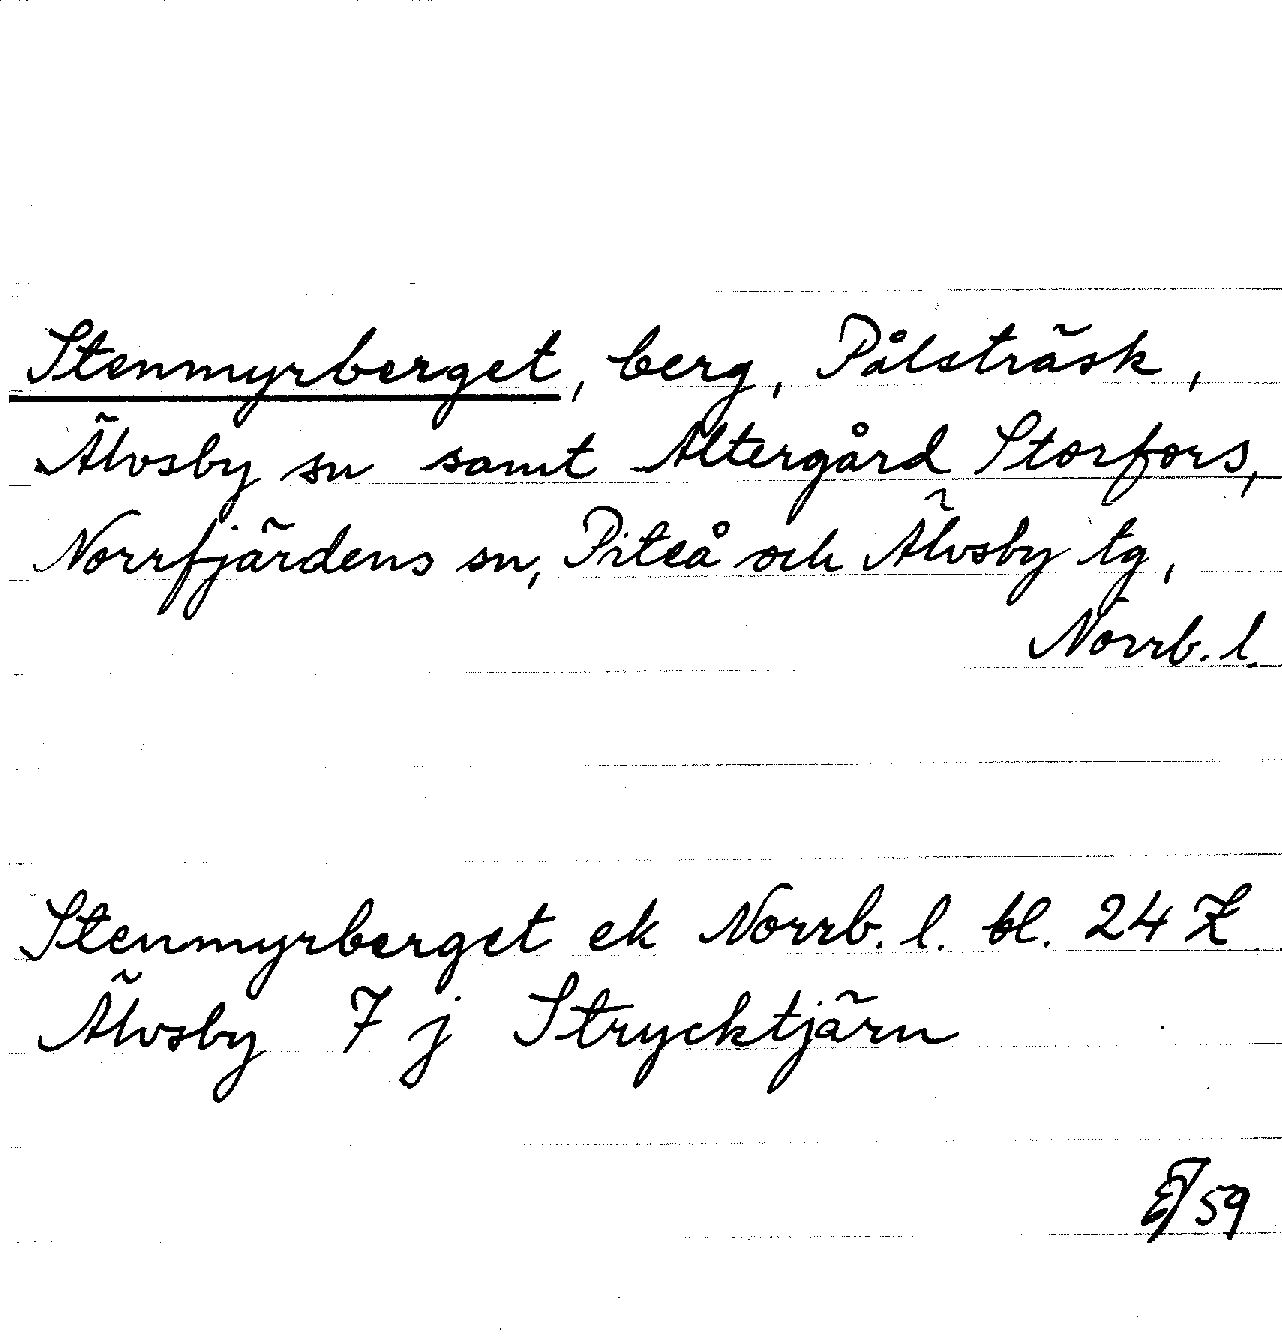 Stenmyrberget, berg, Pålsträsk,
Älvsby sn samt Altergård Storfors,
Norrfjärdens sn, Piteå och Älvsby tg,
Norrb. l.
Stenmyrberget ek Norrb. l. bl. 24 Z
Älvsby 7 j Strycktjärn
/59